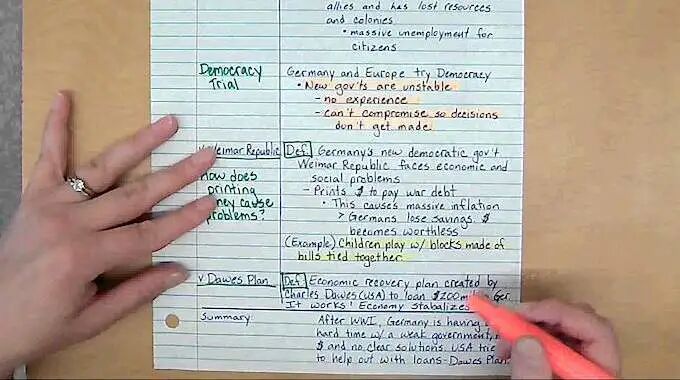 allies and has lost resources
and colonies
• massive unemployment for
citizens
Democracy
Trial
Germany and Europe try Democracy
• New gov'ts are unstable
- no experience
- can't compromise so decisions
don't get made.
Weimar Republic
Def: Germany's new democratic gov't
Weimar Republic faces economic and
social problems
- Prints $ to pay war debt
• This causes massive inflation
> Germans lose savings. $
becomes worthless
(Example) Children play w/ blocks made of
bills tied together.
How does
printing
cause
problems?
v Dawes Plan
Def: Economic recovery plan created by
Charles Dawes (USA) to loan $200 Ger.
It works! Economy stabalizes
Summary
After WWI, Germany is having
hard time w/ a weak government,
$ and no clear solutions. USA
to help out with loans-Dawes Plan